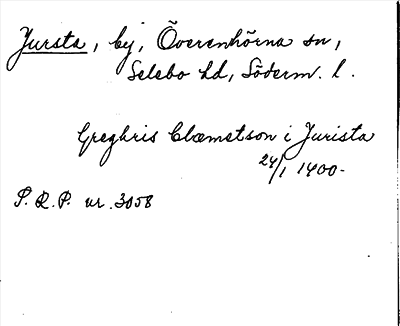 Jursta, by, Överenhörna sn,
Selebo hd, Söderm. l.
Greghris Clæmetson i Jurista
24/1 1400-
S.R.P. nr. 3058